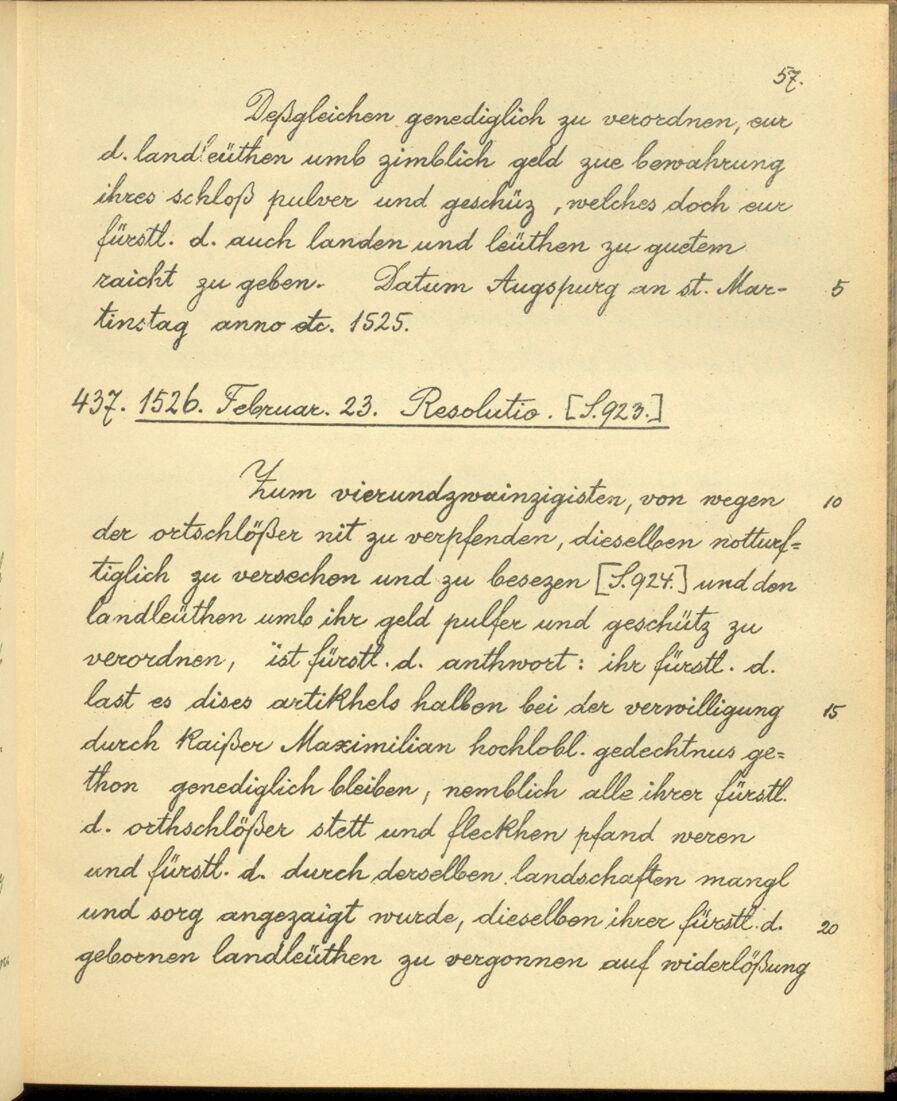 57.
Deßgleichen genediglich zu verordnen, eur
d. landleüthen umb zimblich geld zue bewahrung
ihres schloß pulver und geschüz, welches doch eur
fürstl. d. auch landen und leüthen zu guetem
raicht zu geben. Datum Augspurg an st. Mar- 5
tinstag anno etc. 1525.
437. 1526. Februar. 23. Resolutio. [S.923.]
Zum vierundzwainzigisten, von wegen 10
der ortschlößer nit zu verpfenden, dieselben notturf=
tiglich zu versechen und zu besezen [S.924.] und den
landleüthen umb ihr geld pulfer und geschütz zu
verordnen, ist fürstl. d. anthwort: ihr fürstl. d.
last es dises artikhels halben bei der verwilligung 15
durch Kaißer Maximilian hochlobl. gedechtnus ge=
thon genediglich bleiben, nemblich alle ihrer fürstl.
d. orthschlößer stett und fleckhen pfand weren
und fürstl. d. durch derselben landschaften mangl
und sorg angezaigt wurde, dieselben ihrer fürstl. d. 20
gebornen landleüthen zu vergonnen auf widerlößung